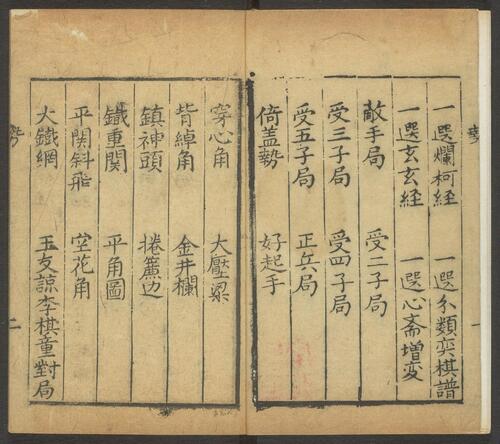 一選爛柯経 一選分類奕棋譜
一選玄玄経 一選心斎增変
敵手局 受二子局
受三子局 受四子局
受五子局 正兵局
倚盖勢 好起手
穿心角 大壓梁
背綽角 金井欄
鎮神頭 捲簾边
鐵重関 平角圖
平関斜飛 空花角
大鐵網 王友諒李棋童對局
二